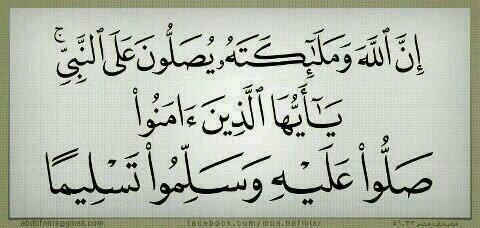 إِنَّ ٱللَّهَ وَمَلَٰٓئِكَتَهُۥ يُصَلُّونَ عَلَى ٱلنَّبِىِّ ۚ
يَٰٓأَيُّهَا ٱلَّذِينَ ءَامَنُوا۟
صَلُّوا۟ عَلَيْهِ وَسَلِّمُوا۟ تَسْلِيمًا
abdofonts@gmail.com facebook.com/mos.hafmisr